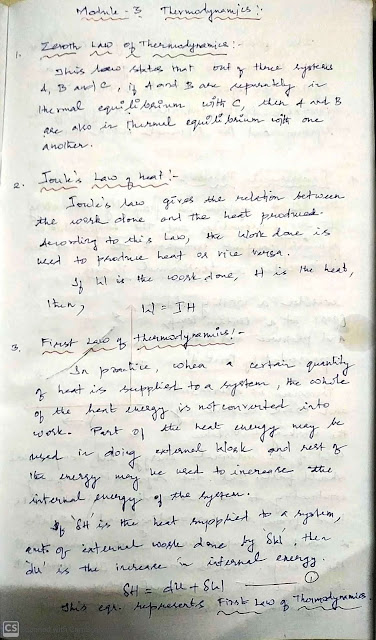 Module - 3 Thermodynamics :-
1. Zeroth Law of Thermodynamics :-
This law states that out of three systems
A, B and C, if A and B are separately in
thermal equilibrium with C, then A and B
are also in thermal equilibrium with one
another.
2. Joule's Law of heat :-
Joule's law gives the relation between
the work done and the heat produced.
According to this Law, the Work done is
used to produce heat or vice versa.
If W is the work done, H is the heat,
then, W = JH
3. First Law of thermodynamics :-
In practice, when a certain quantity
of heat is supplied to a system, the whole
of the heat energy is not converted into
work. Part of the heat energy may be
used in doing external Work and rest of
the energy may be used to increase the
internal energy of the system.
If 'δH' is the heat supplied to a system,
amt. of external work done by 'δW', then
'dU' is the increase in internal energy.
δH = dU + δW ——— ①
This eqn. represents First Law of Thermodynamics.
CS